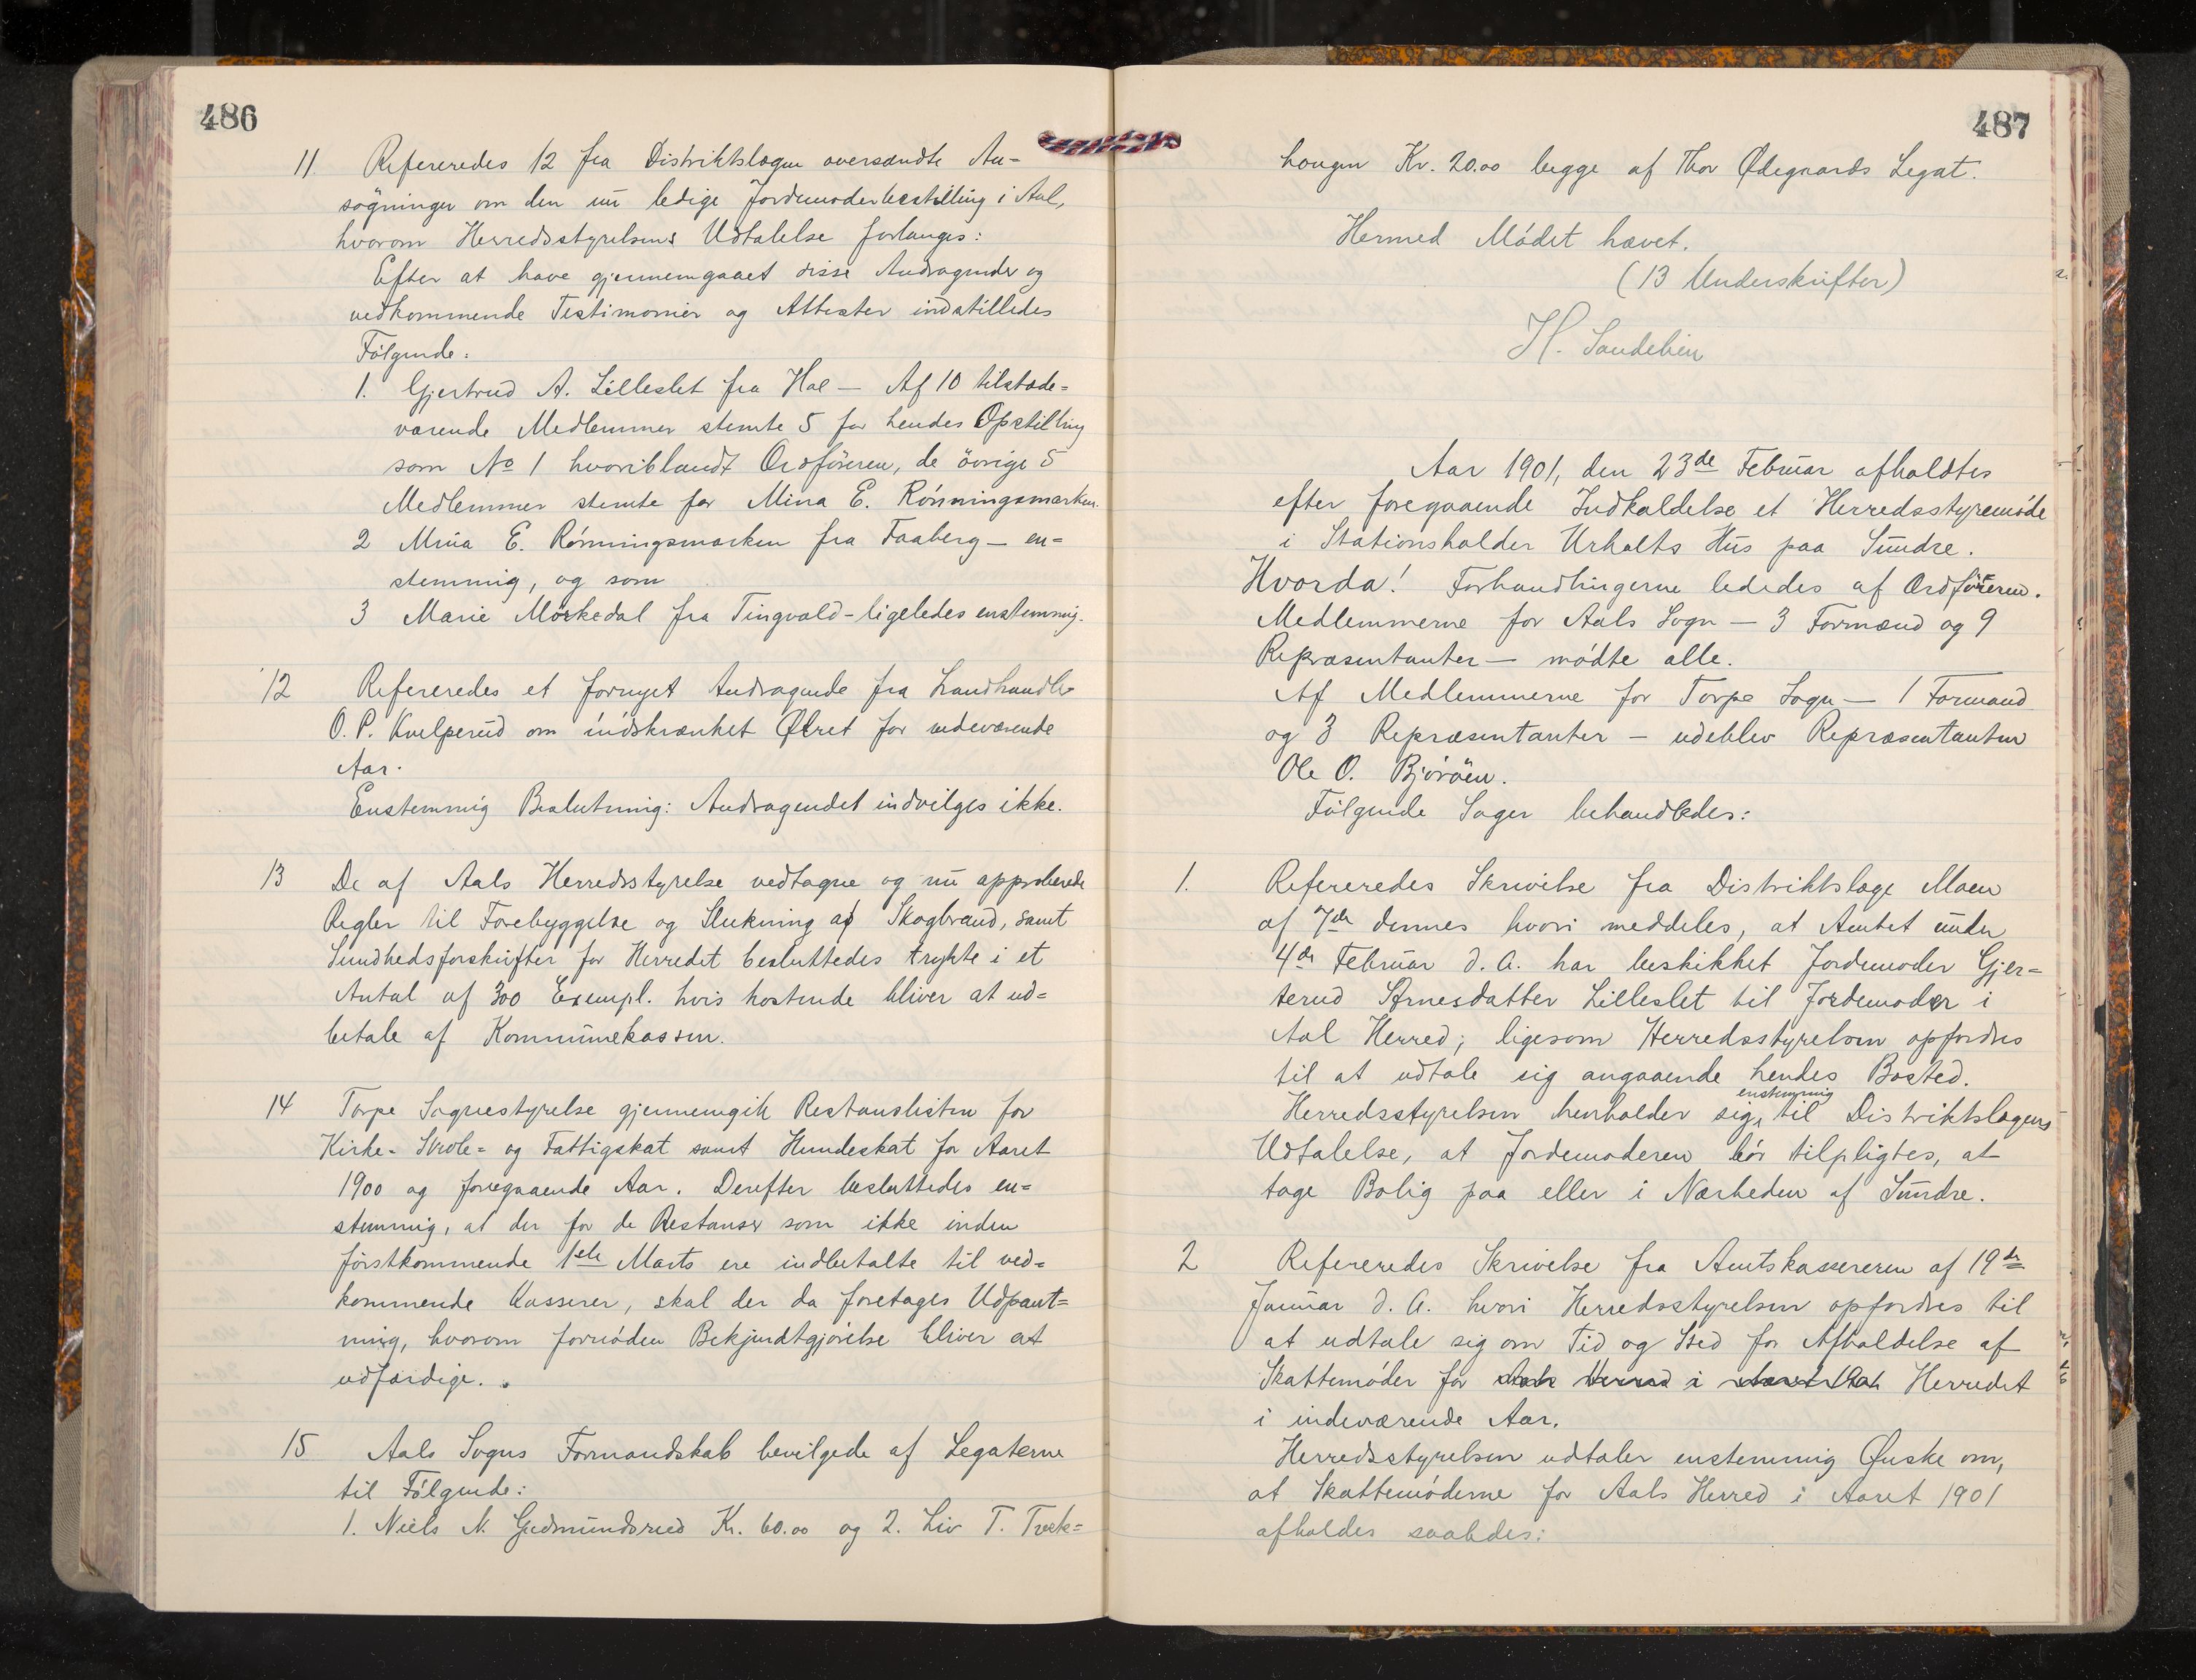 486
11 Refereredes 12 fra Distriktslægen oversendte An=
søgninger om den nu ledige Jordemoderbestilling i Aal,
hvorom Herredsstyrelsens Udtalelse forlanges:
Efter at have gjennemgaaet disse Andragender og
vedkommende Testimonier og Attester indstilledes
Følgende:
1. Gjertrud A. Lilleslet fra Hol — Af 10 tilstede=
værende Medlemmer stemte 5 for hendes Opstilling
som No 1 hvoriblandt Ordføreren, de øvrige 5
Medlemmer stemte for Mina E. Rønningsmarken.
2 Mina E. Rønningsmarken fra Faaberg — en=
stemmig, og som
3 Marie Mørkedal fra Tingvold - ligeledes enstemmig.
12 Refereredes et fornyet Andragende fra Landhandler
O. P. Kvelperud om indskrænket Ølret for indeværende
Aar.
Enstemmig Beslutning: Andragendet indvilges ikke.
13 De af Aals Herredsstyrelse vedtagne og nu approberede
Regler til Forebyggelse og Slukning af Skogbrand, samt
Sundhedsforskrifter for Herredet besluttedes trykte i et
Antal af 300 Exempl. hvis kostende bliver at ud=
betale af Kommunekassen.
14 Torpe Sognestyrelse gjennemgik Restanslisten for
Kirke- Skole= og Fattigskat samt Hundeskat for Aaret
1900 og foregaaende Aar. Derefter besluttedes en=
stemmig, at der for de Restanser som ikke inden
førstkommende 1ste Marts ere indbetalte til ved=
kommende Kasserer, skal der da foretages Udpant=
ning, hvorom fornøden Bekjendtgjørelse bliver at
udfærdige.
15 Aals Sogns Formandskab bevilgede af Legaterne
til Følgende:
1. Niels N. Gudmundsrud Kr. 60.00 og 2. Liv T. Træk=
487
hougen Kr. 20.00 begge af Thor Ødegaards Legat.
Hermed Mødet hævet.
(13 Underskrifter)
H. Sandelien
Aar 1901, den 23de Februar afholdtes
efter foregaaende Indkaldelse et Herredsstyremøde
i Stationsholder Urholts Hus paa Sundre.
Hvorda! Forhandlingerne lededes af Ordføreren.
Medlemmerne for Aals Sogn — 3 Formænd og 9
Repræsentanter — mødte alle.
Af Medlemmerne for Torpe Sogn — 1 Formand
og 3 Repræsentanter — udeblev Repræsentanten
Ole O. Bjørøen.
Følgende Sager behandledes:
1. Refereredes Skrivelse fra Distriktslæge Moen
af 7de dennes hvori meddeles, at Amtet under
4de Februar d. A. har beskikket Jordemoder Gjer=
terud Arnesdatter Lilleslet til Jordemoder i
Aal Herred; ligesom Herredsstyrelsen opfordres
til at udtale sig angaaende hendes Bosted.
Herredsstyrelsen henholder sig enstemmig til Distriktslægens
Udtalelse, at Jordemoderen bør tilpligtes, at
tage Bolig paa eller i Nærheden af Sundre.
2 Refereredes Skrivelse fra Amtskassereren af 19de
Januar d. A. hvori Herredsstyrelsen opfordres til
at udtale sig om Tid og Sted for Afholdelse af
Skattemøder for Aals Herred i Aaret 1901 Herredet
i indeværende Aar.
Herredsstyrelsen udtaler enstemmig Ønske om,
at Skattemøderne for Aals Herred i Aaret 1901
afholdes saaledes: